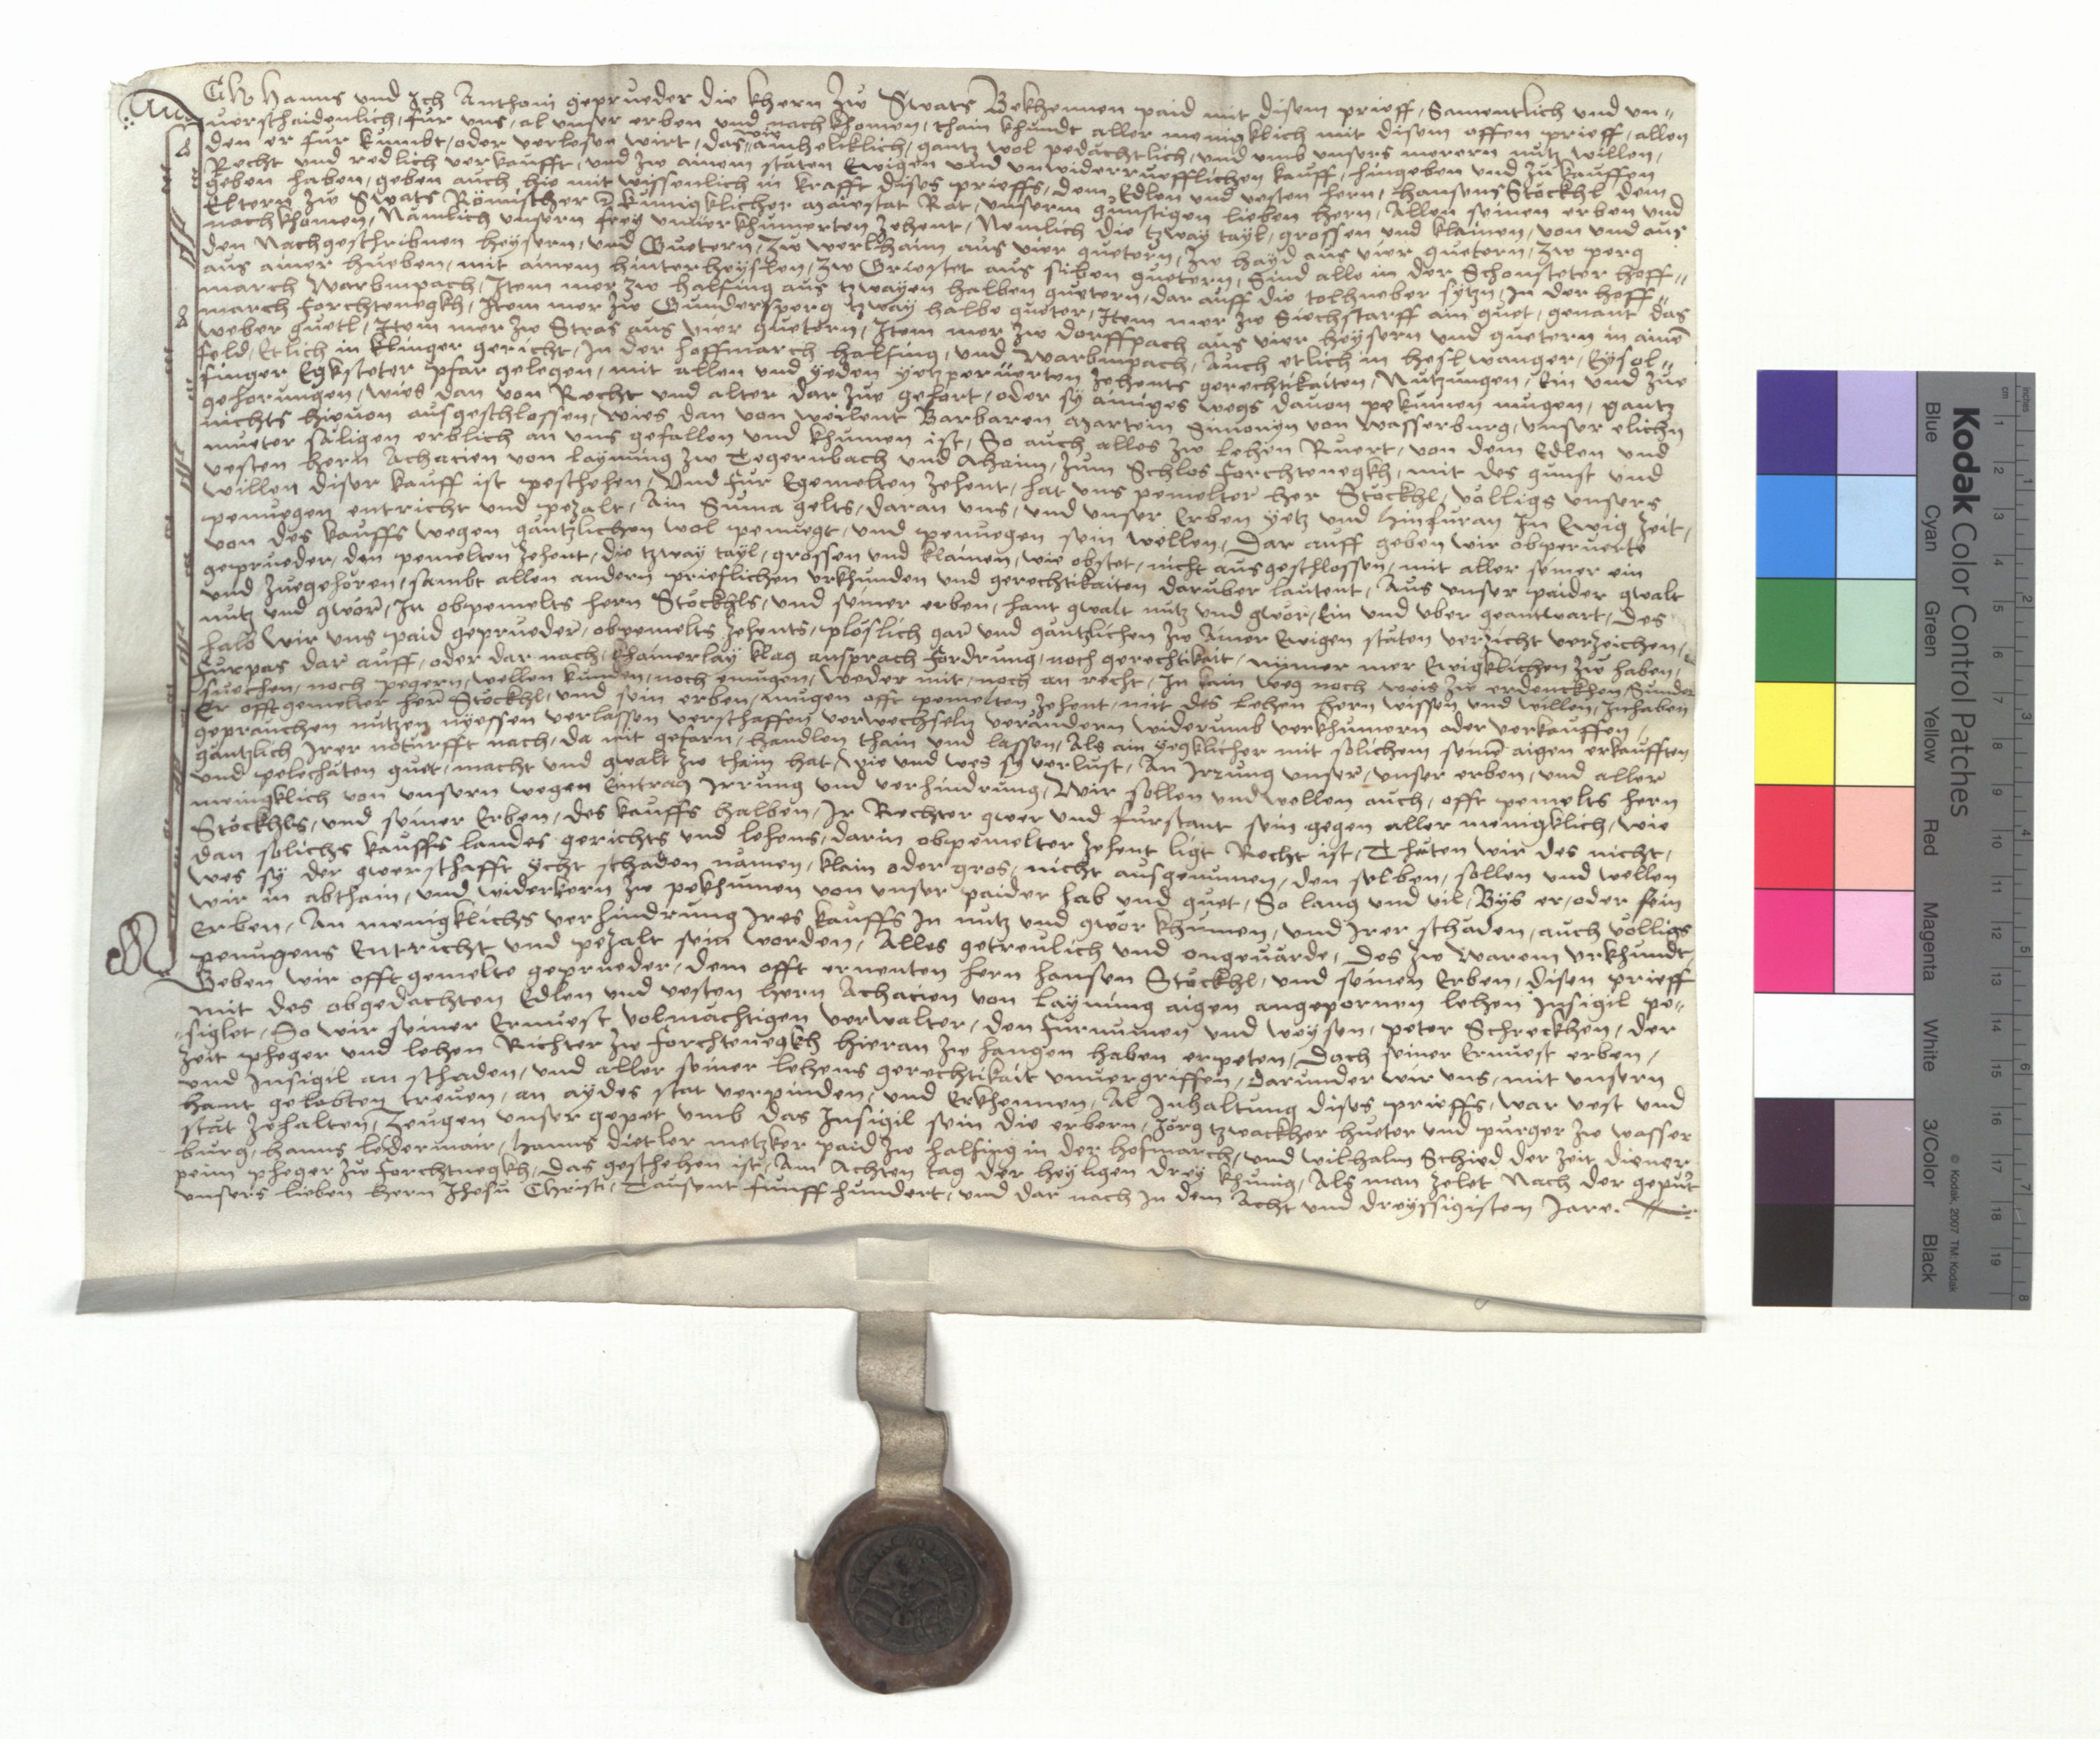 Ich Hanns und Ich Anthoin geprueder die khern Zw Swats Bekhennen paid mit disem prieff, Samentlich und un„
uerschaidenlich, für uns, al unser erben und nachkhomen, thain khundt aller menigklich mit disem offen prieff, allen
den er fur kumbt, oder verlesen wirt, das wir ainheliklich, gantz wol pedächtlich, und umb unsers merern nutz willen,
Recht und redlich verkaufft, und zw ainem stäten Ewigen und unwiderruefflichen kauff, hingeben und zu kauffen
geben haben, geben auch hie mit wissenlich in krafft dises prieffs, dem Edlen und vesten hern, Hansens Stöckhl dem
Eltern zw Swats Römischer kunigklicher Maiestat Rat, unserm günstigen lieben hern, Allen seinen erben und
nachkhomen, Nämlich unsern frey unverkhumerten Zehent, Nemlich die tzway tayl, grossen und klainen, von und aus
den Nachgeschribnen heysern, und Guetern, Zw werlhaim aus vier guetern, Zw hayd aus vier guetern, Zw perg
aus ainer hueben, mit ainem hinterheyslen, Zw Griestet aus siben guetern, Sind alle in der Schonsteter hoff„
march Warbmpach, Item mer zw halfing aus tzwayen halben guetern, dar auff die tollhueber sytzn, In der hoff„
march forchtenegkh, Item mer zw Gundersperg tzway halbe gueter, Item mer zw Siechstarff ain guet, genant das
weber guetl, Item mer zw Stras aus vier guetern, Item mer zw dorffpach aus vier heysern und guetern in ainē
feld, Etlich in klinger gericht, In der hoffmarch halfing, und Warbmpach, Auch etlich in heslwanger, Eysol„
finger Egksteter pfar gelegen, mit allen und yeden yetz perüerten Zehents gerechtikaiten, Nutzungen, Ein und Zue
gehorungen, wies dan von Recht und alter dar zue gehort, oder sy ainiges wegs dauon pekumen mugen, gantz
nichts hieuon ausgeschlossen, wies dan von weilent Barbaren Martein Simonyn von Wasserburg, unser elichn
mueter säligen erblich an uns gefallen und khumen ist, So auch alles zw lehen Ruert, von dem Edlen und
vesten hern Achacien von Laynning zw Tegernbach und Ahaim, zum Schlos forchtenegkh, mit des gunst und
willen diser kauff ist peschehen, Und fur Egemelten Zehent, hat uns pemelter her Stöckhl, völligs unsers
penuegen entricht und pezalt, Ain Suma gelts, daran uns, und unser Erben yetz und hinfuran In Ewig Zeit,
von des kauffs wegen gäntzlichen wol penuegt, und penuegen sein wellen, Dar auff geben wir obperuerte
geprueder, den pemelten Zehent, die tzway tayl, grossen und klainen, wie obstet, nicht ausgeschlossen, mit aller seiner ein
und Zuegehoren, sambt allen andern prieflichen urkhunden und gerechtikaiten daruber lautent, Aus unser paider gwalt
nutz und gwör, In obpemelts hern Stöckhls, und seiner erben, hant gwalt nutz und gwör, Ein und uber geantwart, Des
halb wir uns paid geprueder, obpemelts Zehents, plöslich gar und gäntzlichen zw ainer Ewigen stäten verzicht verzeichen,
furpas dar auff, oder dar nach, khainerlay klag ansprach fordrung, noch gerechtikait, nymer mer Ewigklichen zw haben,
suechen, noch pegern, wellen kunden, noch enmugen, weder mit, noch an recht, In kain weg noch weis zw erdenckhen, Sunder
Er offtgemelter her Stöckhl, und sein erben, mugen offt pemelten Zehent, mit des lehen hern wissen und willen, Inhaben
geprauchen nutzen nyessen verlassen verschaffen verwechseln verändern widerumb verkhumern oder verkauffen,
gäntzlich Irer noturfft nach, da mit gefarn, handlen thain und lassen, Als ain yegklicher mit solichem seinē aigen erkaufften
und pelechäten guet, macht und gwalt zw thain hat, wie und wes sy verlust, An Irrung unser, unser erben, und aller
menigklich von unsern wegen Eintrag Irrung und verhindrung, Wir sollen und wellen auch, offt pemelts hern
Stöckhls, und seiner Erben, des kauffs halben, Ir Rechter gwer und fürstant sein gegen aller menigklich, wie
dan solichs kauffs landes gerichts und lehens, darin obpemelter Zehent ligt Recht ist, Thäten wir des nicht,
wes sy der gwerschafft ycht schaden nämen, klain oder gros, nicht ausgenumen, den selben, sollen und wellen
wir in abthain, und widerkern zw pekhumen von unser paider hab und guet, So lang und vil, Bys er, oder sein
Erben, An menigklichs verhindrung Ires kauffs In nutz und gwör khumen, und Irer schäden, auch völligs
penugens Entricht und pezalt sein worden, Alles getreulich und ongeuärde, Des zw warem urkhundt,
Geben wir offtgemelte geprueder, dem offt ernenten hern hansen Stöckhl, und seinen Erben, disen prieff
mit des obgedachten Edlen und vesten hern Achacien von Laynning aigen angepornen lehen Insigil pe„
„siglet, So wir seiner Ernuest volmächtigen verwalter, den furnumen und weysen, peter Schreckhen, der
Zeit pfleger und lehen Richter zw forchtenegkh hieran zw hangen haben erpeten, Doch seiner Ernuest erben,
und Insigil an schaden, und aller seiner lehens gerechtikait unuergriffen, darunder wir uns, mit unsern
hant gelobten treuen, an aydes stat verpinden, und Erkhennen, Al Inhaltung dises prieffs, war vest und
stät Zehalten, Zeugen unser gepet umb das Insigil sein die erbern, Jörg tzwackher hueter und purger zw wasser
burg, hanns ledermair, hanns dietler metzker paid zw halfing in der hofmarch, und wilhalm Schied der Zeit diener
peim pfleger zw forchtnegkh, Das geschehen ist, Am Achten tag der heyligen drey khunig, Als man zelet Nach der gepurt
unsers lieben hern Jhesu Christi, Tausent funff hundert, und dar nach In dem Acht und dreyssigisten Jare.
Kodak Color Control Patches
Blue Cyan Green Yellow Red Magenta White 3/Color Black
© Kodak, 2007 TM: Kodak
inches 1 2 3 4 5 6 7 8
cm 1 2 3 4 5 6 7 8 9 10 11 12 13 14 15 16 17 18 19